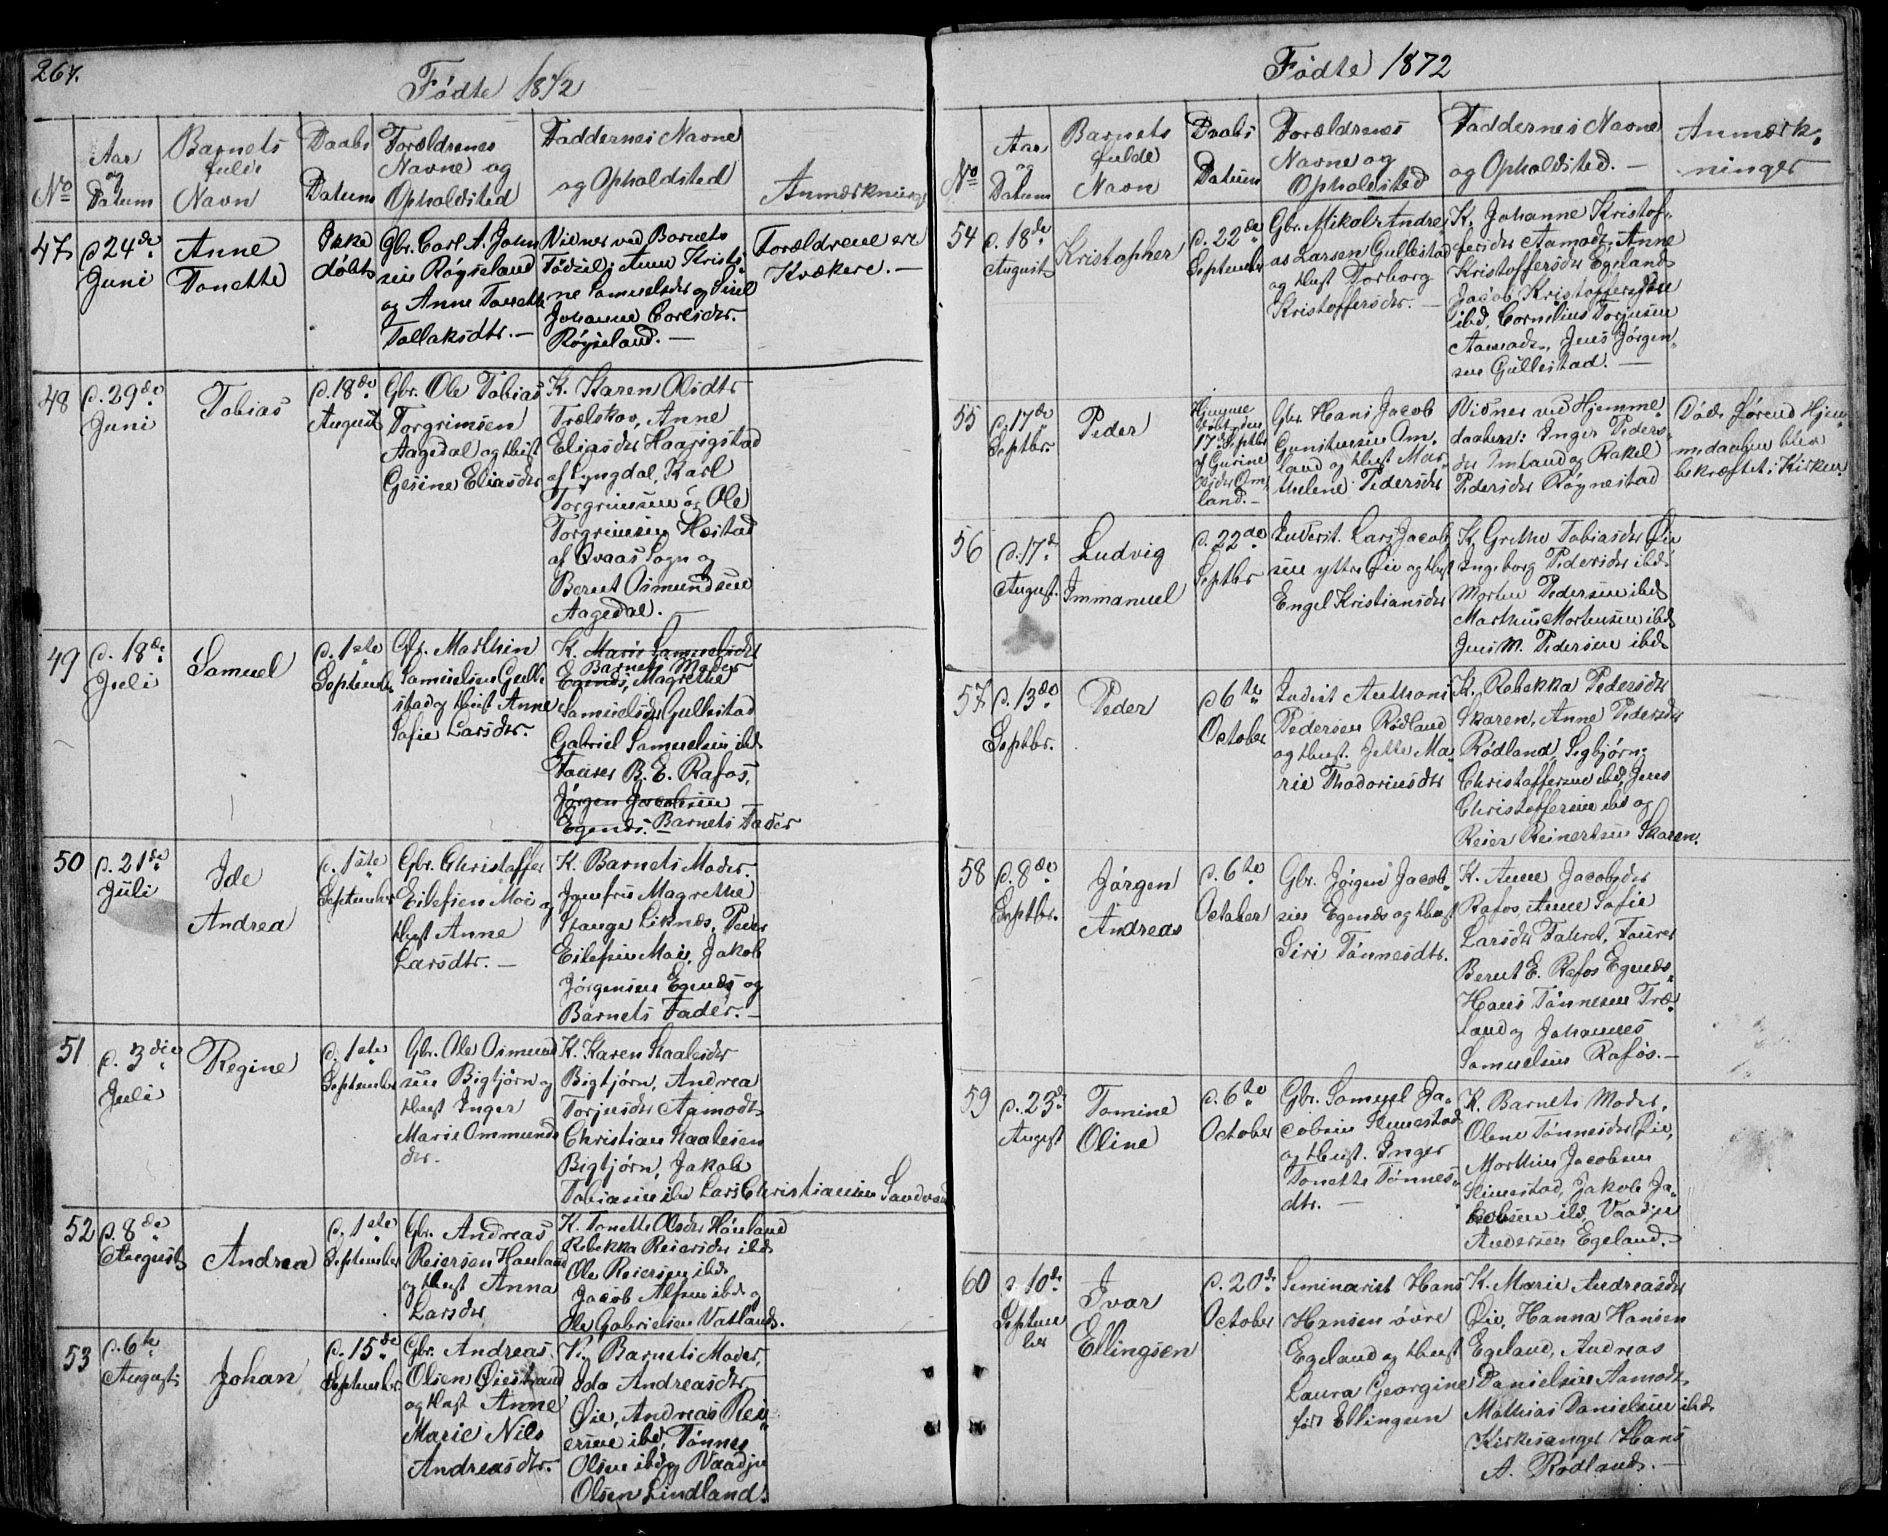 267.
Fødte 1872
No
Aar og Datum
Barnets fulde Navn
Daabs Datum
Forældrenes Navne og Opholdsted
Faddernes Navne og Opholdsted
Anmærkninger
47
d. 24de Juni
Anne Tonette
Ikke døbt
Gbr. Carl A. John
sen Røyseland
og Anne Tonette
Tallaksdtr. —
Vidner ved Barnets
Fødsel; Anne Kristi
ne Samuelsdtr og Sirel
Johanne Carlsdtr.
Røyseland. —
Forældrene ere
Kvækere. —
48
d. 29de Juni
Tobias
d. 18de August
Gbr. Ole Tobias
Torgrimsen
Aagedal og Hust
Gesine Eliasdtr
K. Karen Olsdtr
Trælskov, Anne
Eliasdtr Haarigstad
af Lyngdal, Karl
Torgrimsen og Ole
Torgrimsen Hæstad
af Qvaas Sogn og
Bernt Osmundsen
Aagedal. —
49
d. 18de Juli
Samuel
d. 1ste September
Gbr. Marthin
Samuelsen Gulle
stad og Hust Anne
Sofie Larsdtr.
K. Marie Samuelsdtr
Barnets Moder
Egenes, Magrethe
Samuelsdtr Gullestad
Gabriel Samuelsen ibd
Fourer B. E. Rafos,
Jørgen Jacobsen
Egenes. Barnets Fader
50
d. 21de Juli
Ide Andrea
d. 1ste September
Gbr. Christoffer
Eilefsen Moi og
Hust Anne
Larsdtr. —
K. Barnets Moder.
Jomfru Magrethe
Stange Liknes, Peder
Eilefsen Moi, Jakob
Jørgensen Egenes og
Barnets Fader. —
51
d. 3die Juli
Regine
d. 1ste September
Gbr. Ole Osmund
sen Bigtjørn og
Hust Inger
Marie Ommunds
dtr.
K. Karen Staalesdtr
Bigtjørn, Andrea
Torjusdtr Aamodt
Christian Staalesen
Bigtjørn, Jakob
Tobiasen ibd Lars Christiansen Sandvand
52
d. 8de August
Andrea
d. 1ste September
Gbr. Andreas
Reiersen Hønland
og Hust Anna
Larsdtr
K. Tonette Olsdtr Hønland
Rebekka Reiersdtr ibd.
Ole Reiersen ibd.
Jacob Alfsen ibd og
Ole Gabrielsen Vatland.
53
d. 6te August
Johan
d. 15de September
Gbr. Andreas
Olsen Øiestrand
og Hust Anne
Marie Nils
Andreasdtr.
K. Barnets Moder,
Ida Andreasdtr
Øie, Andreas Rei
ersen ibd, Tønnes
Olsen ibd og Vaadju
Olsen Lindland.
Fødte 1872
No
Aar og Datum
Barnets fulde Navn
Daabs Datum
Forældrenes Navne og Opholdsted
Faddernes Navne og Opholdsted. —
Anmærkninger
54
d. 18de August
Kristopher
d. 22de September
Gbr. Mikal Andre
as Larsen Gullestad
og Hust Torborg
Kristoffersdtr. —
K. Johanne Kristof
fersdtr Aamodt, Anne
Kristoffersdtr Egeland
Jacob Kristoffersen
ibd, Cornelius Torjusen
Aamodt, Jens Jørgen
sen Gullestad. —
55
d. 17de Septbr.
Peder
Hjemme
døbt den
17 Septbr
af Gurine
Olsdtr Om
land. —
Gbr. Hans Jacob
Gunstensen Om
land og Hust Mar
thelene Pedersdtr
Vidner ved Hjemme
daaben: Inger Peders
dtr Omland og Rakel
Pedersdtr Røynestad
Døde førend Hjem
medaaben blev
bekræftet i Kirken.
56
d. 17de August.
Ludvig Immanuel
d. 22de Septbr
Inderst. Lars Jacob
sen ytre Øie og Hust
Engel Kristiansdtr
K. Grethe Tobiasdtr Øie
Ingeborg Pedersdtr ibd
Morten Pedersen ibd
Marthin Mortensen ibd
Jens M. Pedersen ibd
57
d. 13de Septbr.
Peder
d. 6te October
Inderst Anthoni
Pedersen Rødland
og Hust. Jette Ma
rie Thodoriusdtr
K. Rebekka Pedersdtr
Skaren, Anne Pedersdtr
Rødland, Sigbjørn
Christoffersen ibd, Jens
Christoffersen ibd og
Reier Reinertsen Skaren.
58
d. 8de Septbr.
Jørgen Andreas
d. 6te October
Gbr. Jørgen Jacob
sen Egenes og Hust
Siri Tønnesdtr.
K. Anne Jacobsdtr
Rafos, Anne Sofie
Larsdtr Faleret, Fourer
Bernt E. Rafos Egenes
Hans Tønnesen Træ
land og Johannes
Samuelsen Rafos. —
59
d. 23de August
Tomine Oline
d. 6te October
Gbr. Samuel Ja
cobsen Stimestad
og Hust. Inger
Tonette Tønnes
dtr. —
K. Barnets Moder,
Olene Tønnesdtr Øie,
Marthin Jacobsen
Slimestad, Jakob Ja
cobsen ibd, Vaadju
Andersen Egeland. —
60
d. 10de September
Ivar Ellingsen
d. 20de October
Seminarist Hans
Hansen øvre
Egeland og Hust
Laura Georgine
født Ellingsen
K. Marie Andreasdtr
Øie, Hanna Hansen
Egeland, Andreas
Danielsen Aamodt
Mathias Danielsen ibd.
Kirkesanger Hans
A. Rødland. —